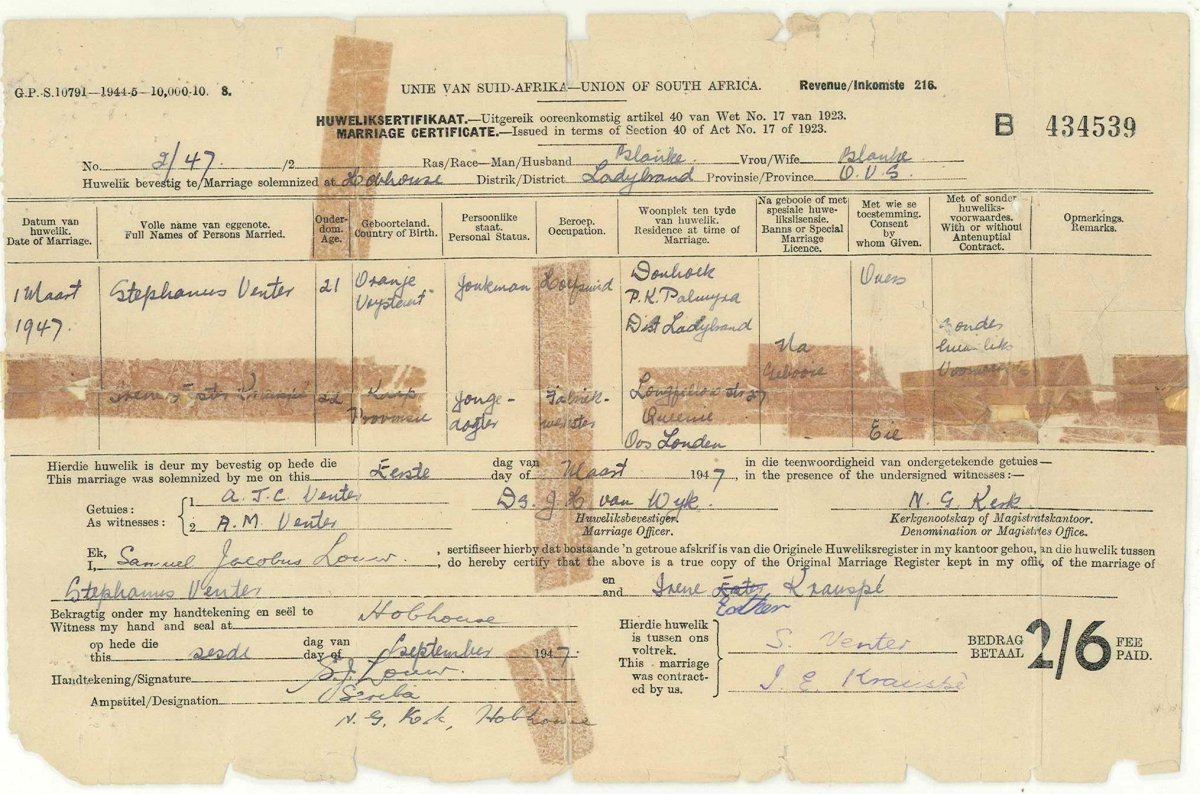 G.P.-S.10791—1944-5—10,000-10. 8.
UNIE VAN SUID-AFRIKA—UNION OF SOUTH AFRICA.
Revenue/Inkomste 216.
HUWELIKSERTIFIKAAT.—Uitgereik ooreenkomstig artikel 40 van Wet No. 17 van 1923.
MARRIAGE CERTIFICATE.—Issued in terms of Section 40 of Act No. 17 of 1923.
B 434539
No. 2/47. /2 Ras/Race—Man/Husband Blanke. Vrou/Wife Blanke
Huwelik bevestig te/Marriage solemnized at Hobhouse Distrik/District Ladybrand Provinsie/Province O.V.S.
Datum van huwelik. Date of Marriage.
Volle name van eggenote. Full Names of Persons Married.
Ouderdom. Age.
Geboorteland. Country of Birth.
Persoonlike staat. Personal Status.
Beroep. Occupation.
Woonplek ten tyde van huwelik. Residence at time of Marriage.
Na gebooie of met spesiale huwelikslisensie. Banns or Special Marriage Licence.
Met wie se toestemming. Consent by whom Given.
Met of sonder huweliksvoorwaardes. With or without Antenuptial Contract.
Opmerkings. Remarks.
1 Maart 1947.
Stephanus Venter
21
Oranje Vrystaat
Jonkman
Donhoek
P.K. Palmyra
Dist Ladybrand
Ouers
22
Kaap Provinsie
Jonge-dogter
Fabriek-werkster
Longfellow str 37
Queenie
Oos Londen
Na Gebooie
Eie
Sonder
Huweliks
Hierdie huwelik is deur my bevestig op hede die dag van in die teenwoordigheid van ondergetekende getuies—
This marriage was solemnized by me on this Eerste day of Maart 1947, in the presence of the undersigned witnesses:—
Getuies: As witnesses:
1 A.J.C. Venter
2 A.M. Venter
Ds. J.H. van Wyk.
Huweliksbevestiger.
Marriage Officer.
N. G Kerk
Kerkgenootskap of Magistratskantoor.
Denomination or Magistrates Office.
Ek, sertifiseer hierby dat bostaande 'n getroue afskrif is van die Originele Huweliksregister in my kantoor gehou, an die huwelik tussen
I, Samuel Jacobus Louw, do hereby certify that the above is a true copy of the Original Marriage Register kept in my offic, of the marriage of
Stephanus Venter en and Irene Ester Krauspé
Esther
Bekragtig onder my handtekening en seël te
Witness my hand and seal at Hobhouse
op hede die dag van
this sesde day of September 1947.
Handtekening/Signature S.J. Louw.
Ampstitel/Designation Scriba
N. G. Kerk, Hobhouse
Hierdie huwelik is tussen ons voltrek.
This marriage was contracted by us.
S. Venter
I. E. Krauspé
BEDRAG BETAAL 2/6 FEE PAID.